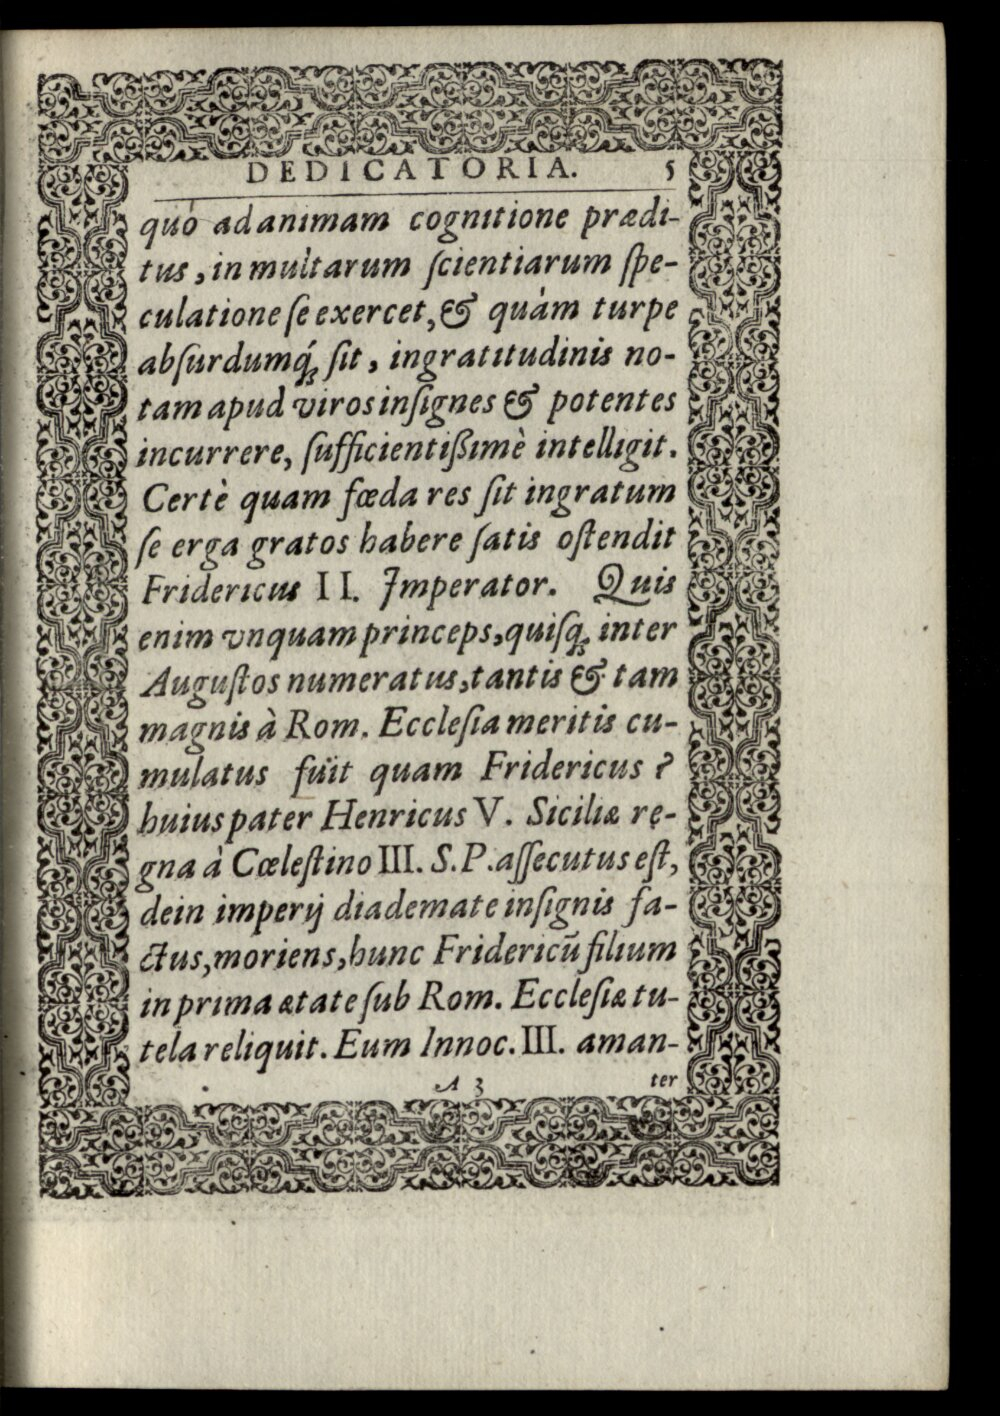 DEDICATORIA. 5
quó ad animam cognitione prædi-
tus, in multarum ſcientiarum ſpe-
culatione ſe exercet, & quàm turpe
abſurdumq́; ſit, ingratitudinis no-
tam apud viros inſignes & potentes
incurrere, ſufficientißimè intelligit.
Certè quam fœda res ſit ingratum
ſe erga gratos habere ſatis oſtendit
Fridericus II. Imperator. Quis
enim vnquam princeps, quiſq; inter
Auguſtos numeratus, tantis & tam
magnis à Rom. Eccleſia meritis cu-
mulatus fuit quam Fridericus?
huius pater Henricus V. Siciliæ re-
gna à Cœleſtino III. S. P. aſſecutus eſt,
dein imperij diademate inſignis fa-
ctus, moriens, hunc Fridericū filium
in prima ætate ſub Rom. Eccleſiæ tu-
tela reliquit. Eum Innoc. III. aman-
A 3 ter